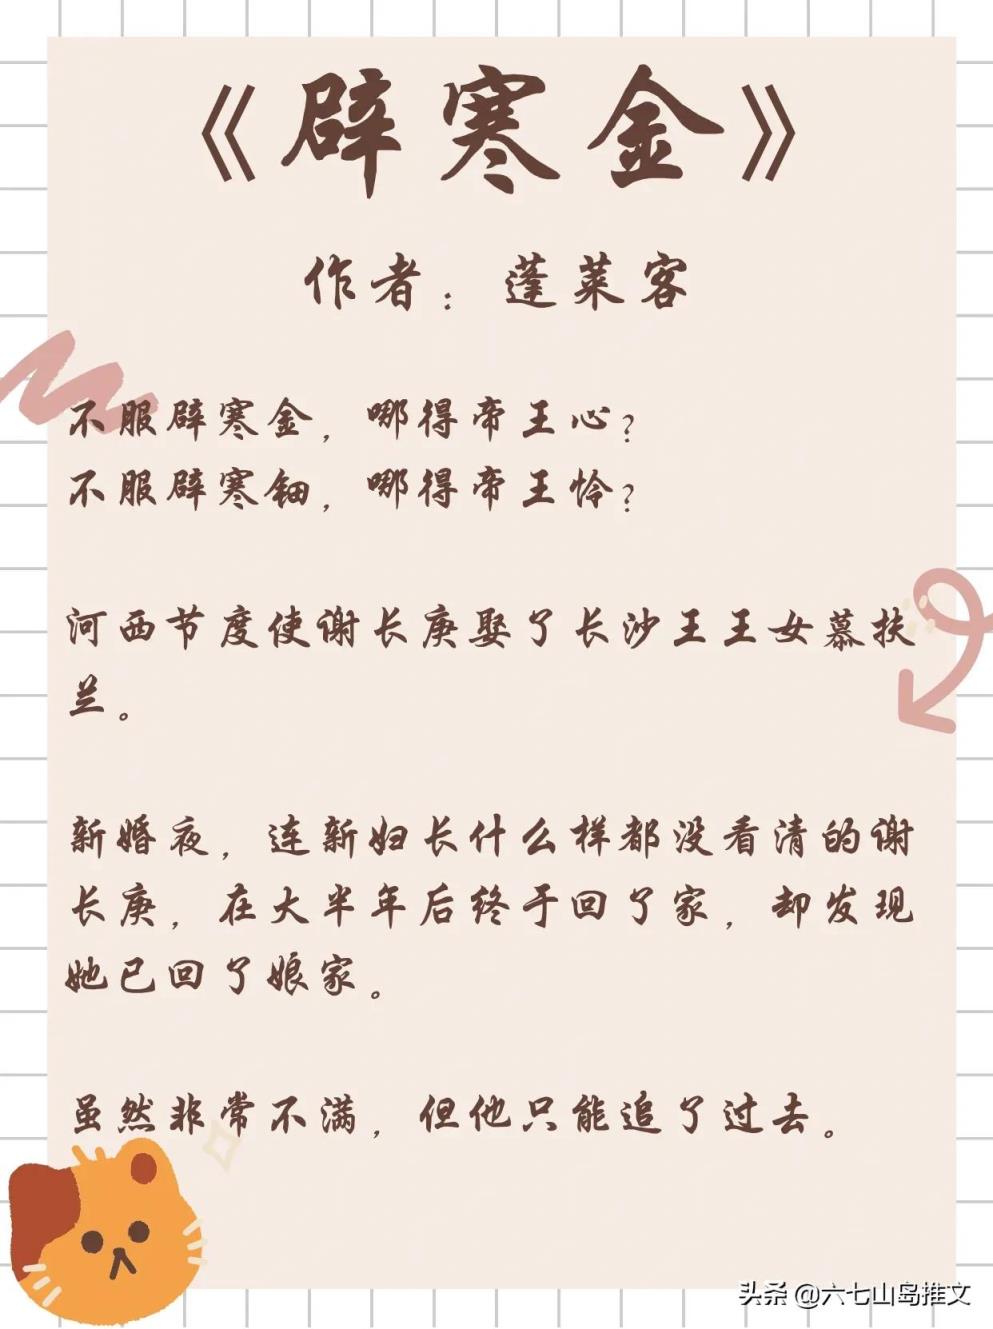 《辟寒金》
作者：蓬莱客
不服辟寒金，哪得帝王心？
不服辟寒钿，哪得帝王怜？
河西节度使谢长庚娶了长沙王王女慕扶
兰。
新婚夜，连新妇长什么样都没看清的谢
长庚，在大半年后终于回了家，却发现
她已回了娘家。
虽然非常不满，但他只能追了过去。
头条 @六七山岛推文